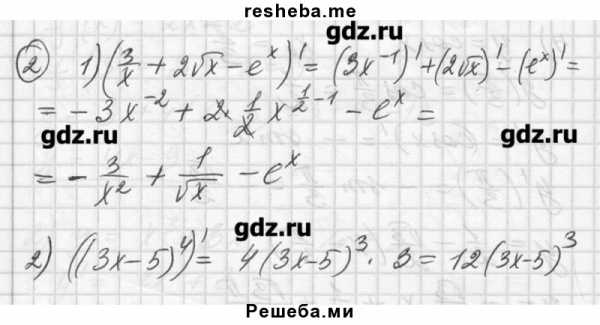 resheba.me
gdz.ru
② 1) (3/x + 2√x − eˣ)' = (3x⁻¹)' + (2√x)' − (eˣ)' =
= − 3x⁻² + 2 · 1/2 x^(1/2 − 1) − eˣ =
gdz.ru gdz.ru
= − 3/x² + 1/√x − eˣ
gdz.ru
2) ((3x − 5)⁴)' = 4(3x − 5)³ · 3 = 12(3x − 5)³
Решеба.ми